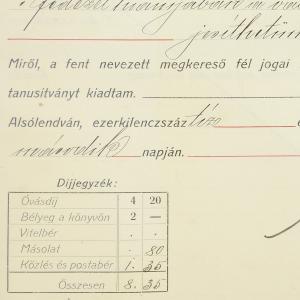 fedezet hiányában
Miről, a fent nevezett megkereső fél jogai
tanusítványt kiadtam.
Alsólendván, ezerkilenczszáztíz
második napján.
Díjjegyzék:
Óvásdíj 4 20
Bélyeg a könyvön 2 —
Vitelbér . .
Másolat . 80
Közlés és postabér 1. 35
Összesen 8. 35